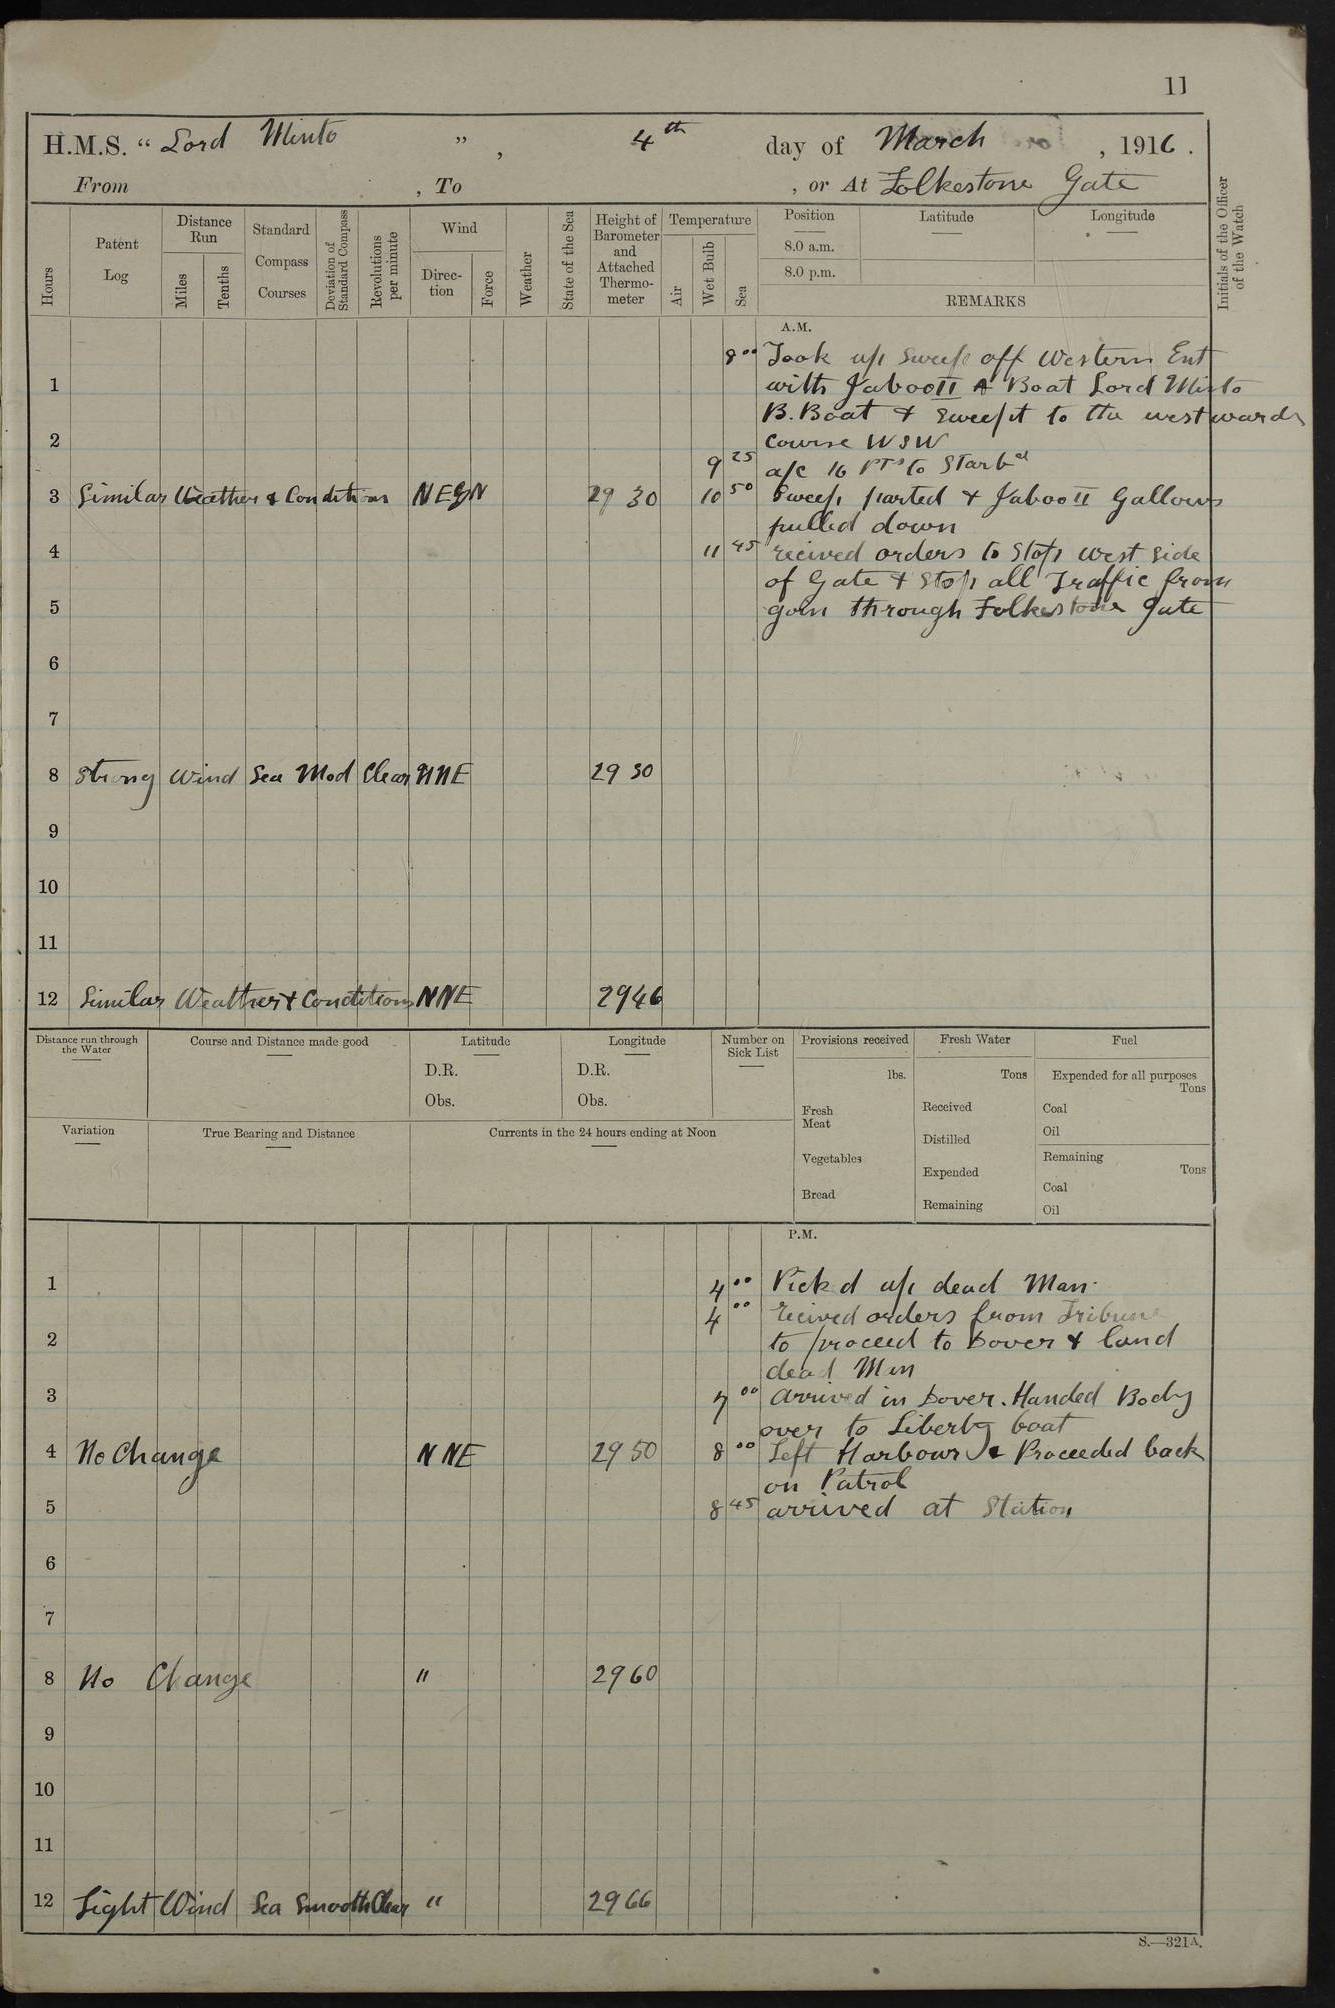 11
H.M.S. " Lord Minto " , 4th day of March , 1916 .
From , To , or At Folkestone Gate
Hours
Patent Log
Distance Run
Miles
Tenths
Standard Compass Courses
Deviation of Standard Compass
Revolutions per minute
Wind
Direc-tion
Force
Weather
State of the Sea
Height of Barometer and Attached Thermo-meter
Temperature
Air
Wet Bulb
Sea
Position
8.0 a.m.
8.0 p.m.
Latitude
Longitude
REMARKS
Initials of the Officer of the Watch
A.M.
8 00 Took up Sweep off Western Ent
1 with Jaboo II A Boat Lord Minto
B. Boat & Sweept to the westwards
2 Course WSW
9 25 a/c 16 PTs to Starbd
3 Similar Weather & Conditions NEBN 29 30 10 50 Sweep parted & Jaboo II Gallows
pulled down
4 11 45 recived orders to Stop west side
of Gate & Stop all Traffic from
5 goin through Folkestone Gate
6
7
8 Strong Wind Sea Mod Clear NNE 29 30
9
10
11
12 Similar Weather & Conditions NNE 2946
Distance run through the Water
Course and Distance made good
Latitude
D.R.
Obs.
Longitude
D.R.
Obs.
Number on Sick List
Provisions received
lbs.
Fresh Meat
Vegetables
Bread
Fresh Water
Tons
Received
Distilled
Expended
Remaining
Fuel
Expended for all purposes
Tons
Coal
Oil
Remaining
Tons
Coal
Oil
Variation
True Bearing and Distance
Currents in the 24 hours ending at Noon
P.M.
1 4 00 Pickd up dead Man.
4 00 recived orders from Tribune
2 to proceed to Dover & land
dead Man
3 7 00 arrived in Dover. Handed Body
over to Liberty boat
4 No Change NNE 29 50 8 00 Left Harbour & Proceeded back
on Patrol
5 8 45 arrived at Station
6
7
8 No Change " 2960
9
10
11
12 Light Wind Sea Smooth Clear " 2966
S.—321A.